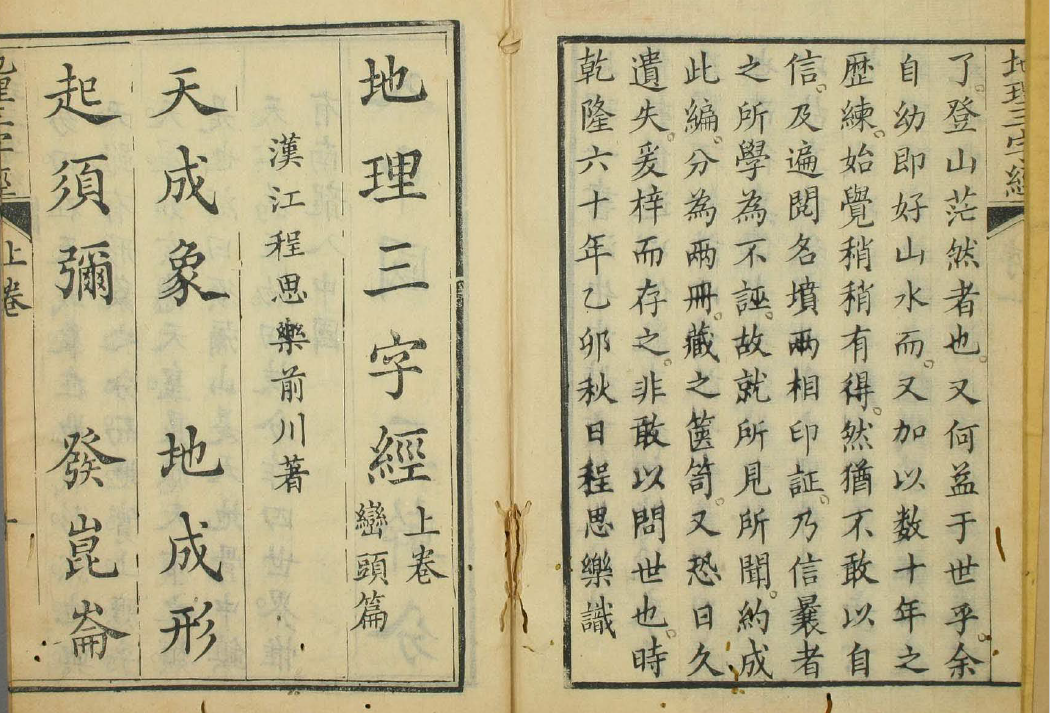 地理三字經
了登山茫然者也又何益于世乎余
自幼即好山水而又加以数十年之
歴練始覺稍稍有得然猶不敢以自
信及遍閱名墳兩相印証乃信曩者
之所學為不誣故就所見所聞約成
此編分為兩冊藏之篋笥又恐日久
遺失爰梓而存之非敢以問世也時
乾隆六十年乙卯秋日程思樂識
地理三字經 上卷 巒頭篇
漢江程思樂前川著
天成象 地成形
起須彌 發崑崙
地理三字經 上卷 一